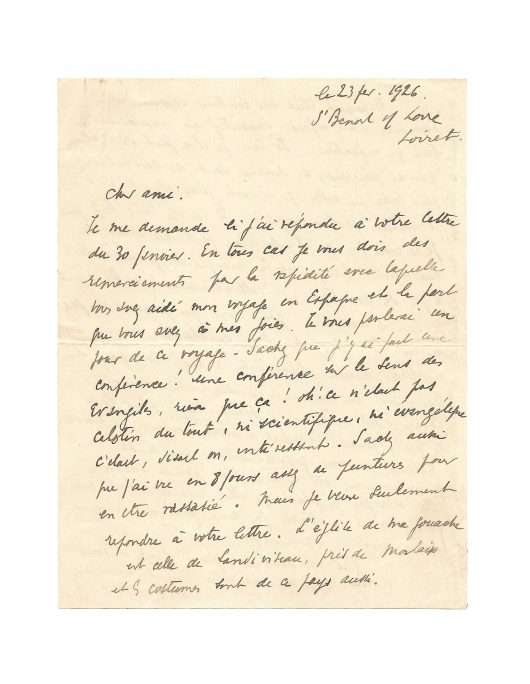 le 23 fev. 1926.
St Benoit s/ Loire
Loiret.
Cher ami.
Je me demande si j'ai répondu à votre lettre
du 30 Janvier. En tous cas je vous dois des
remerciements pour la rapidité avec laquelle
vous avez aidé mon voyage en Espagne et la part
que vous avez à mes joies. Je vous parlerai un
jour de ce voyage. Sachez que j'y ai fait une
conférence! une conférence sur le sens des
Evangiles, rien que ça! oh! ce n'était pas
du tout, ni scientifique, ni évangélique
c'était, disait on, intéressant. Sachez aussi
que j'ai vu en 8 jours assez de peintures pour
en être rassasié. Mais je veux seulement
repondre à votre lettre. L'église de ma gouache
est celle de Landivisiau, près de Morlaix
et les costumes sont de ce pays aussi.